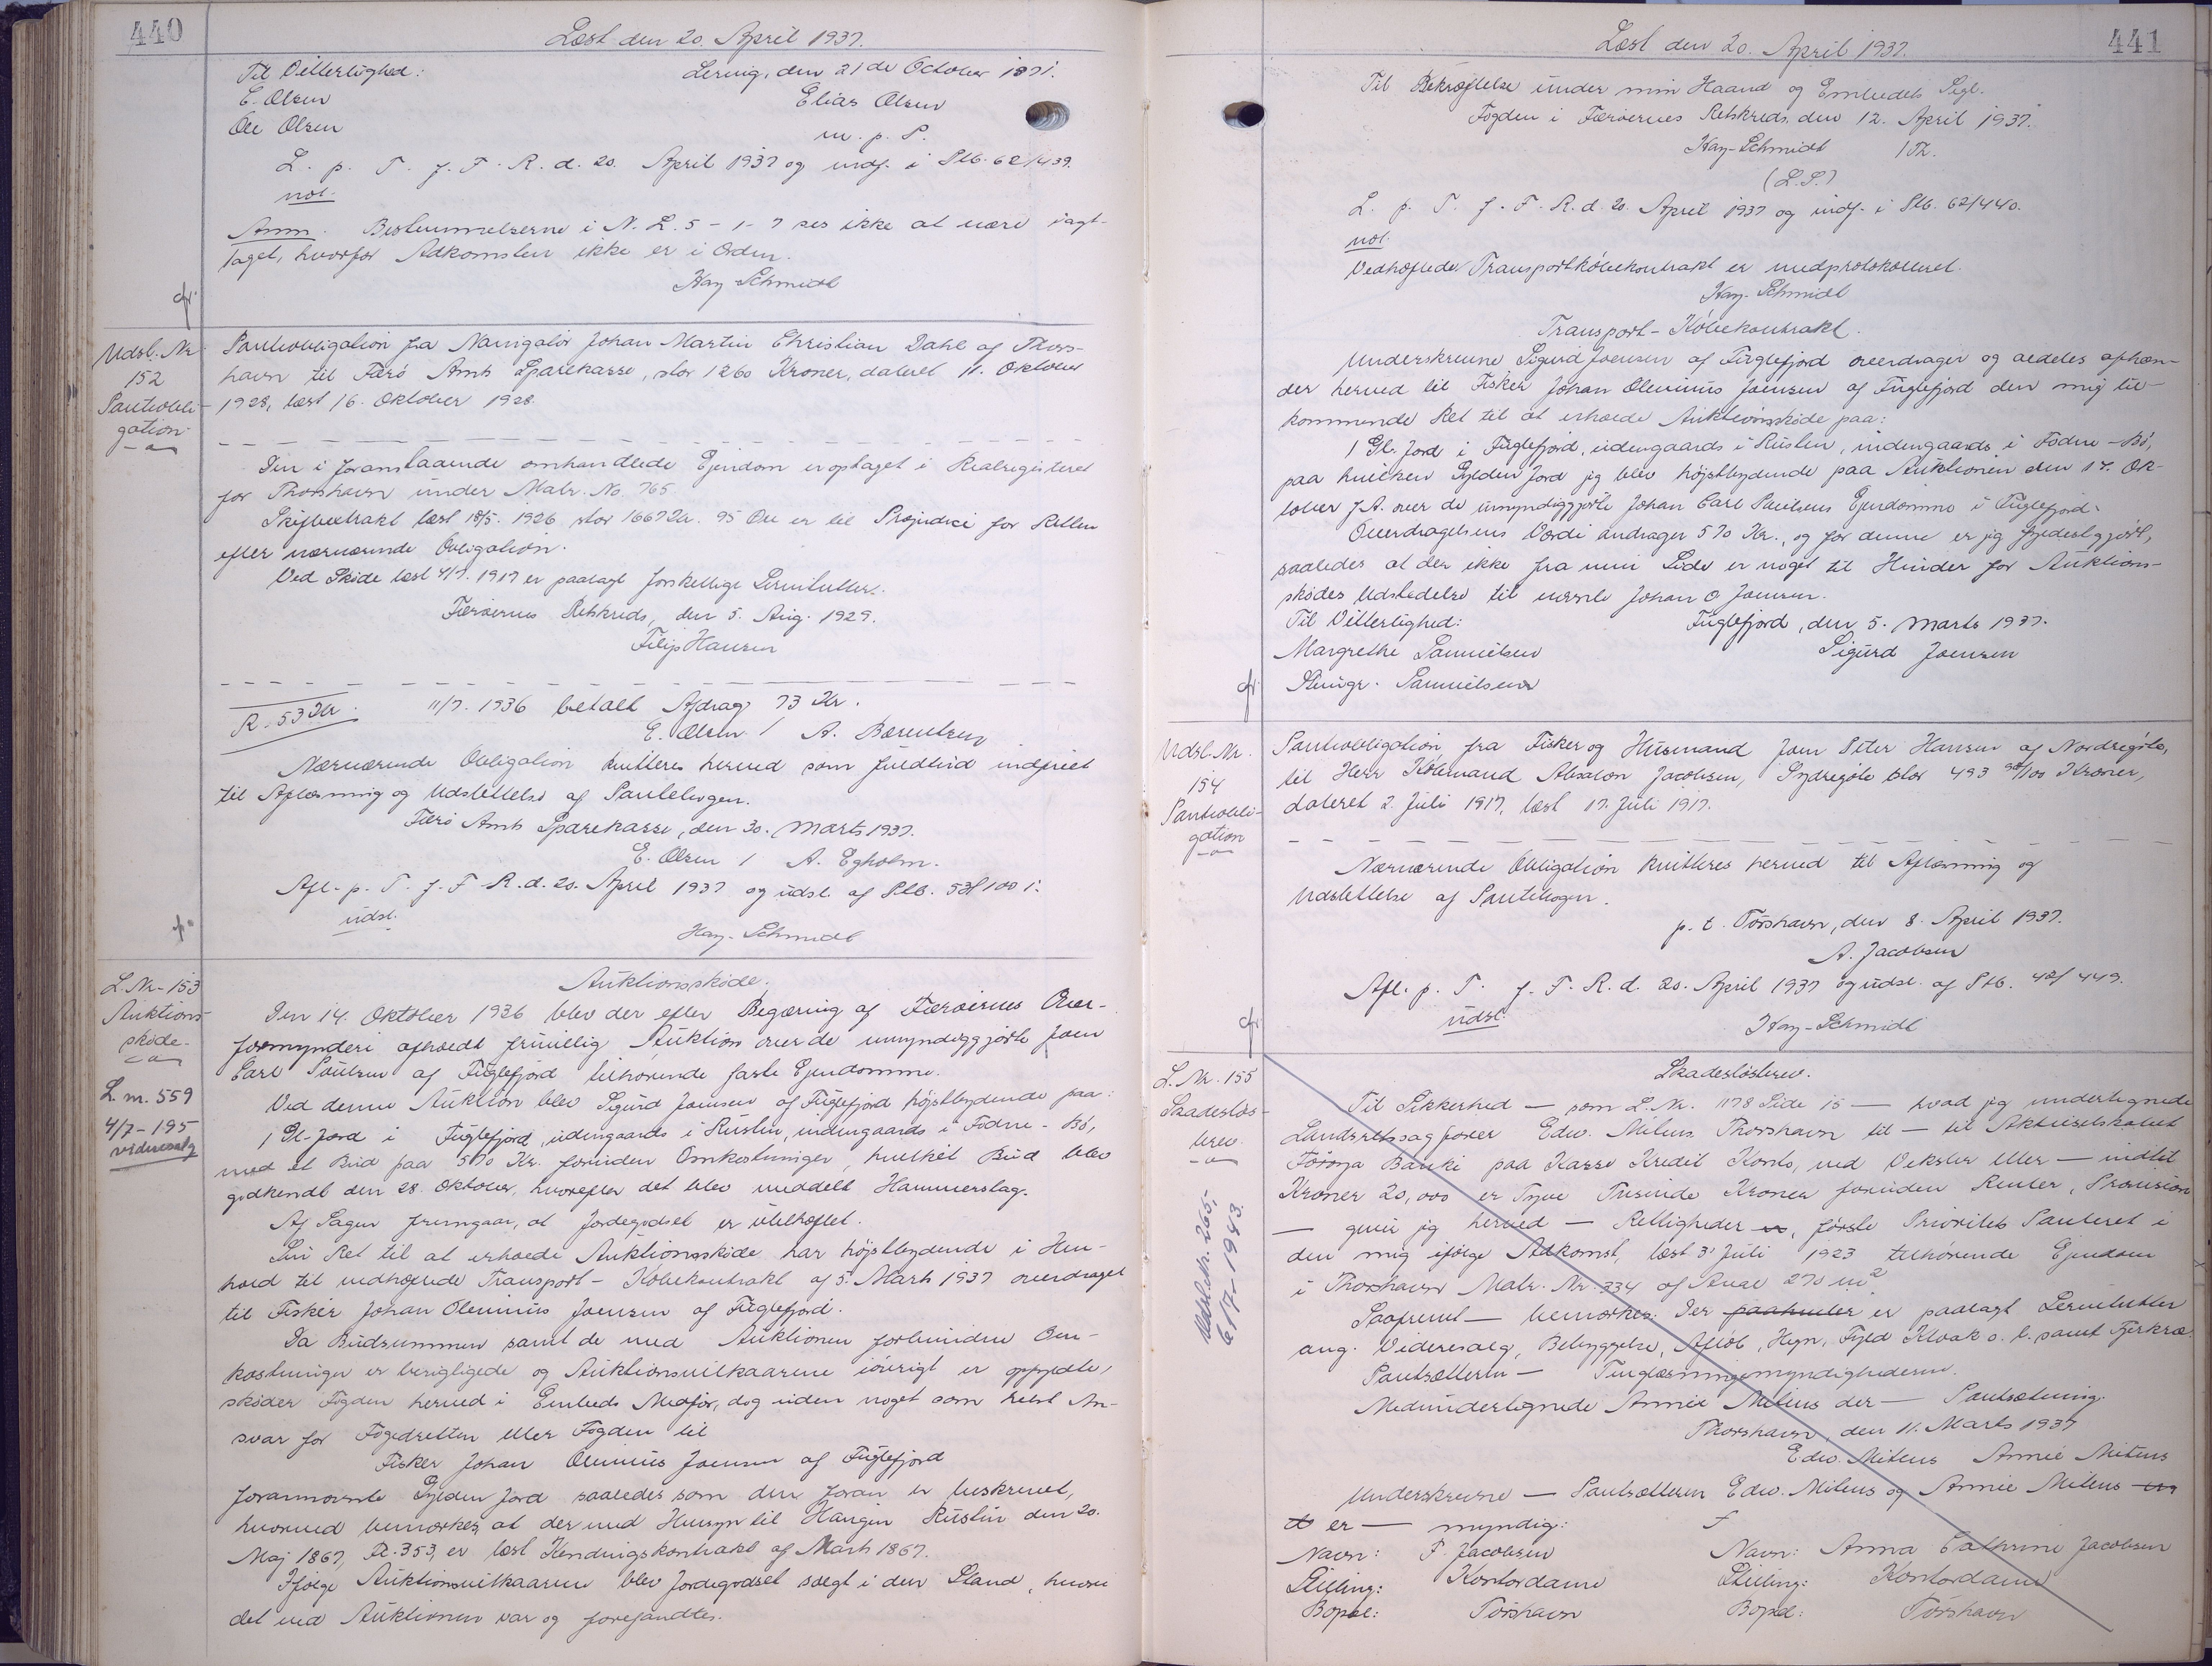 440
Læst den 20. April 1937.
Til Vitterlighed:
Lervig, den 21de October 1871.
E. Olsen
Elias Olsen
Ole Olsen
m. p. S.
L. p. T. f. F. R. d. 20. April 1937 og indf. i Ptb. 62/439.
not.
Anm. Bestemmelserne i N. L. 5 - 1 - 7 ses ikke at være iagt-
taget, hvorfor Adkomsten ikke er i Orden.
Kay-Schmidt
Udsl. Nr.
152
Pantobli-
gation
Pantobligation fra Navigatør Johan Martin Christian Dahl af Thors-
havn til Færø Amts Sparekasse, stor 1260 Kroner, dateret 11. Oktober
1928, læst 16. Oktober 1928.
Den i foranstaaende omhandlede Ejendom er optaget i Realregisteret
for Thorshavn under Matr. No. 765
Skifteextrakt læst 18/5. 1926 stor 1667 Kr. 95 Øre er til Præjudice for Retten
efter nærværende Obligation.
Ved Skøde læst 4/7. 1917 er paalagt forskellige Servitutter.
Færøernes Retskreds, den 5. Aug. 1929.
Filip Hansen
R. 53 Kr.
11/7. 1936 betalt Afdrag 73 Kr.
E. Olsen / A. Bærentsen
Nærværende Obligation kvitteres herved som fuldtud indfriet
til Aflæsning og Udslettelse af Pantebogen.
Færø Amts Sparekasse, den 30. Marts 1937.
E. Olsen / A. Egholm.
Afl. p. T. f. F. R. d. 20. April 1937 og udsl. af Ptb. 53/1001.
udsl.
Kay-Schmidt
L. Nr. 153
Auktions-
skøde.
L. nr. 559
4/7-195
videresalg
Auktionsskøde.
Den 14. Oktober 1936 blev der efter Begæring af Færøernes Over-
formynderi afholdt frivillig Auktion over de umyndiggjorte Joen
Carl Poulsen af Fuglefjord tilhørende faste Ejendomme.
Ved denne Auktion blev Sigurd Joensen af Fuglefjord højstbydende paa:
1 Gl. Jord i Fuglefjord, udengaards i Rustin, indengaards i Fodne-Bø,
med et Bud paa 570 Kr. foruden Omkostninger, hvilket Bud blev
godkendt den 28. Oktober, hvorefter det blev meddelt Hammerslag.
Af Sagen fremgaar, at Jordegodset er ubehæftet.
Sin Ret til at erholde Auktionsskøde har højstbydende i Hen-
hold til vedhæftede Transport-Købekontrakt af 5. Marts 1937 overdraget
til Fisker Johan Oleminus Joensen af Fuglefjord.
Da Budsummen samt de med Auktionen forbundne Om-
kostninger er berigtigede og Auktionsvilkaarene iøvrigt er opfyldte,
skøder Fogden herved i Embeds Medfør, dog uden noget som helst An-
svar for Fogedretten eller Fogden til
Fisker Johan Oleminus Joensen af Fuglefjord
forannævnte Gylden Jord saaledes som den foran er beskrevet,
hvorved bemærkes, at der med Hensyn til Haugin Rustin den 20.
Maj 1867, R. 353, er læst Kendingskontrakt af Marts 1867.
Ifølge Auktionsvilkaarene blev Jordegodset solgt i den Stand, hvori
det ved Auktionen var og forefandtes.
441
Læst den 20. April 1937.
Til Bekræftelse under min Haand og Embedets Segl.
Fogden i Færøernes Retskreds, den 12. April 1937.
Kay-Schmidt
(L.S.)
L. p. T. f. F. R. d. 20. April 1937 og indf. i Ptb. 62/440.
not.
Vedhæftede Transportkøbekontrakt er medprotokolleret.
Kay-Schmidt
Transport-Købekontrakt.
Underskrevne Sigurd Joensen af Fuglefjord overdrager og aldeles afhæn-
der herved til Fisker Johan Oleminus Joensen af Fuglefjord den mig til-
kommende Ret til at erholde Auktionsskøde paa:
1 Gl. Jord i Fuglefjord, udengaards i Rustin, indengaards i Fodne-Bø,
paa hvilken Gylden Jord jeg blev højstbydende paa Auktionen den 14. Ok-
tober f. A. over de umyndiggjorte Johan Carl Poulsens Ejendomme i Fuglefjord.
Overdragelsens Værdi andrager 570 Kr., og for denne er jeg fyldestgjort,
saaledes at der ikke fra min Side er noget til Hinder for Auktions-
skødes Udstedelse til nævnte Johan O Joensen.
Til Vitterlighed:
Fuglefjord, den 5. Marts 1937.
Margrethe Samuelsen
Sigurd Joensen
Samuelsen
Udsl. Nr.
154
Pantobli-
gation
Pantobligation fra Fisker og Husmand Joen Peter Hansen af Nordregøte,
til Herr Købmand Absalon Jacobsen, Sydregøte stor 493 98/100 Kroner,
dateret 2. Juli 1917, læst 17. Juli 1917.
Nærværende Obligation kvitteres herved til Aflæsning og
Udslettelse af Pantebogen.
p. t. Tórshavn, den 8. April 1937.
A. Jacobsen
Afl. p. T. f. F. R. d. 20. April 1937 og udsl. af Ptb. 42/449.
udsl.
Kay-Schmidt
L. Nr. 155
Skadesløs-
brev.
Udsl. Nr. 265,
6/7-1943.
Skadesløsbrev.
Til Sikkerhed — som L. Nr. 1178 Side 15 — hvad jeg undertegnede
Landsretssagfører Edw. Mitens Thorshavn til — til Aktieselskabet
Føroya Banki paa Kasse Kredit Konto, ved Veksler eller — indtil
Kroner 20,000 er Tyve Tusinde Kroner foruden Renter, Provision
— giver jeg herved — Rettigheder, første Prioritets Panteret i
den mig ifølge Adkomst, læst 31 Juli 1923 tilhørende Ejendom
i Thorshavn Matr. Nr. 334 af Areal 270 m2
Saafremt — bemærkes: Der paahviler er paalagt Servitutter
ang. Videresalg, Bebyggelse, Afløb, Hegn, Fyld Kloak o. l. samt Fjerkræ.
Pantsætteren — Tinglæsningsmyndighederne.
Medundertegnede Annie Mitens der — Pantsætning.
Thorshavn, den 11. Marts 1937
Edw. Mitens Annie Mitens
Underskrevne — Pantsætteren Edw. Mitens og Annie Mitens
er — myndig:
Navn: F. Jacobsen
Navn: Anna Cathrine Jacobsen
Stilling: Kontordame
Stilling: Kontordame
Bopæl: Tórshavn
Bopæl: Tórshavn